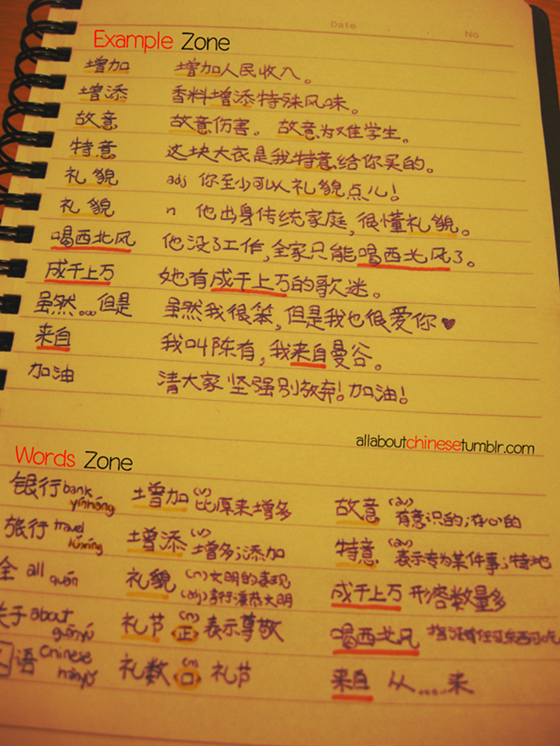 Date
No
Example Zone
增加 增加人民收入。
增添 香料增添特殊风味。
故意 故意伤害。故意为难学生。
特意 这块大衣是我特意给你买的。
礼貌 adj 你至少可以礼貌点儿!
礼貌 n 他出身传统家庭,很懂礼貌。
喝西北风 他没了工作,全家只能喝西北风了。
成千上万 她有成千上万的歌迷。
虽然...但是 虽然我很笨,但是我也很爱你♥
来自 我叫陈有,我来自曼谷。
加油 清大家坚强别放弃!加油!
allaboutchinesetumblr.com
Words Zone
银行 bank yínháng 增加 (v) 比原来增多 故意 (adv) 有意识的;存心的
旅行 travel lǚxíng 增添 (v) 增多;添加 特意 (adv) 表示专为某件事;特地
全 all quán 礼貌 (n) 文明的表现 (adj) 成千上万 形容数量多
关于 about guānyú 礼节 (n) 正 表示尊敬 喝西北风
语 Chinese hànyǔ 礼数 (n) 口 礼节 来自 从....来